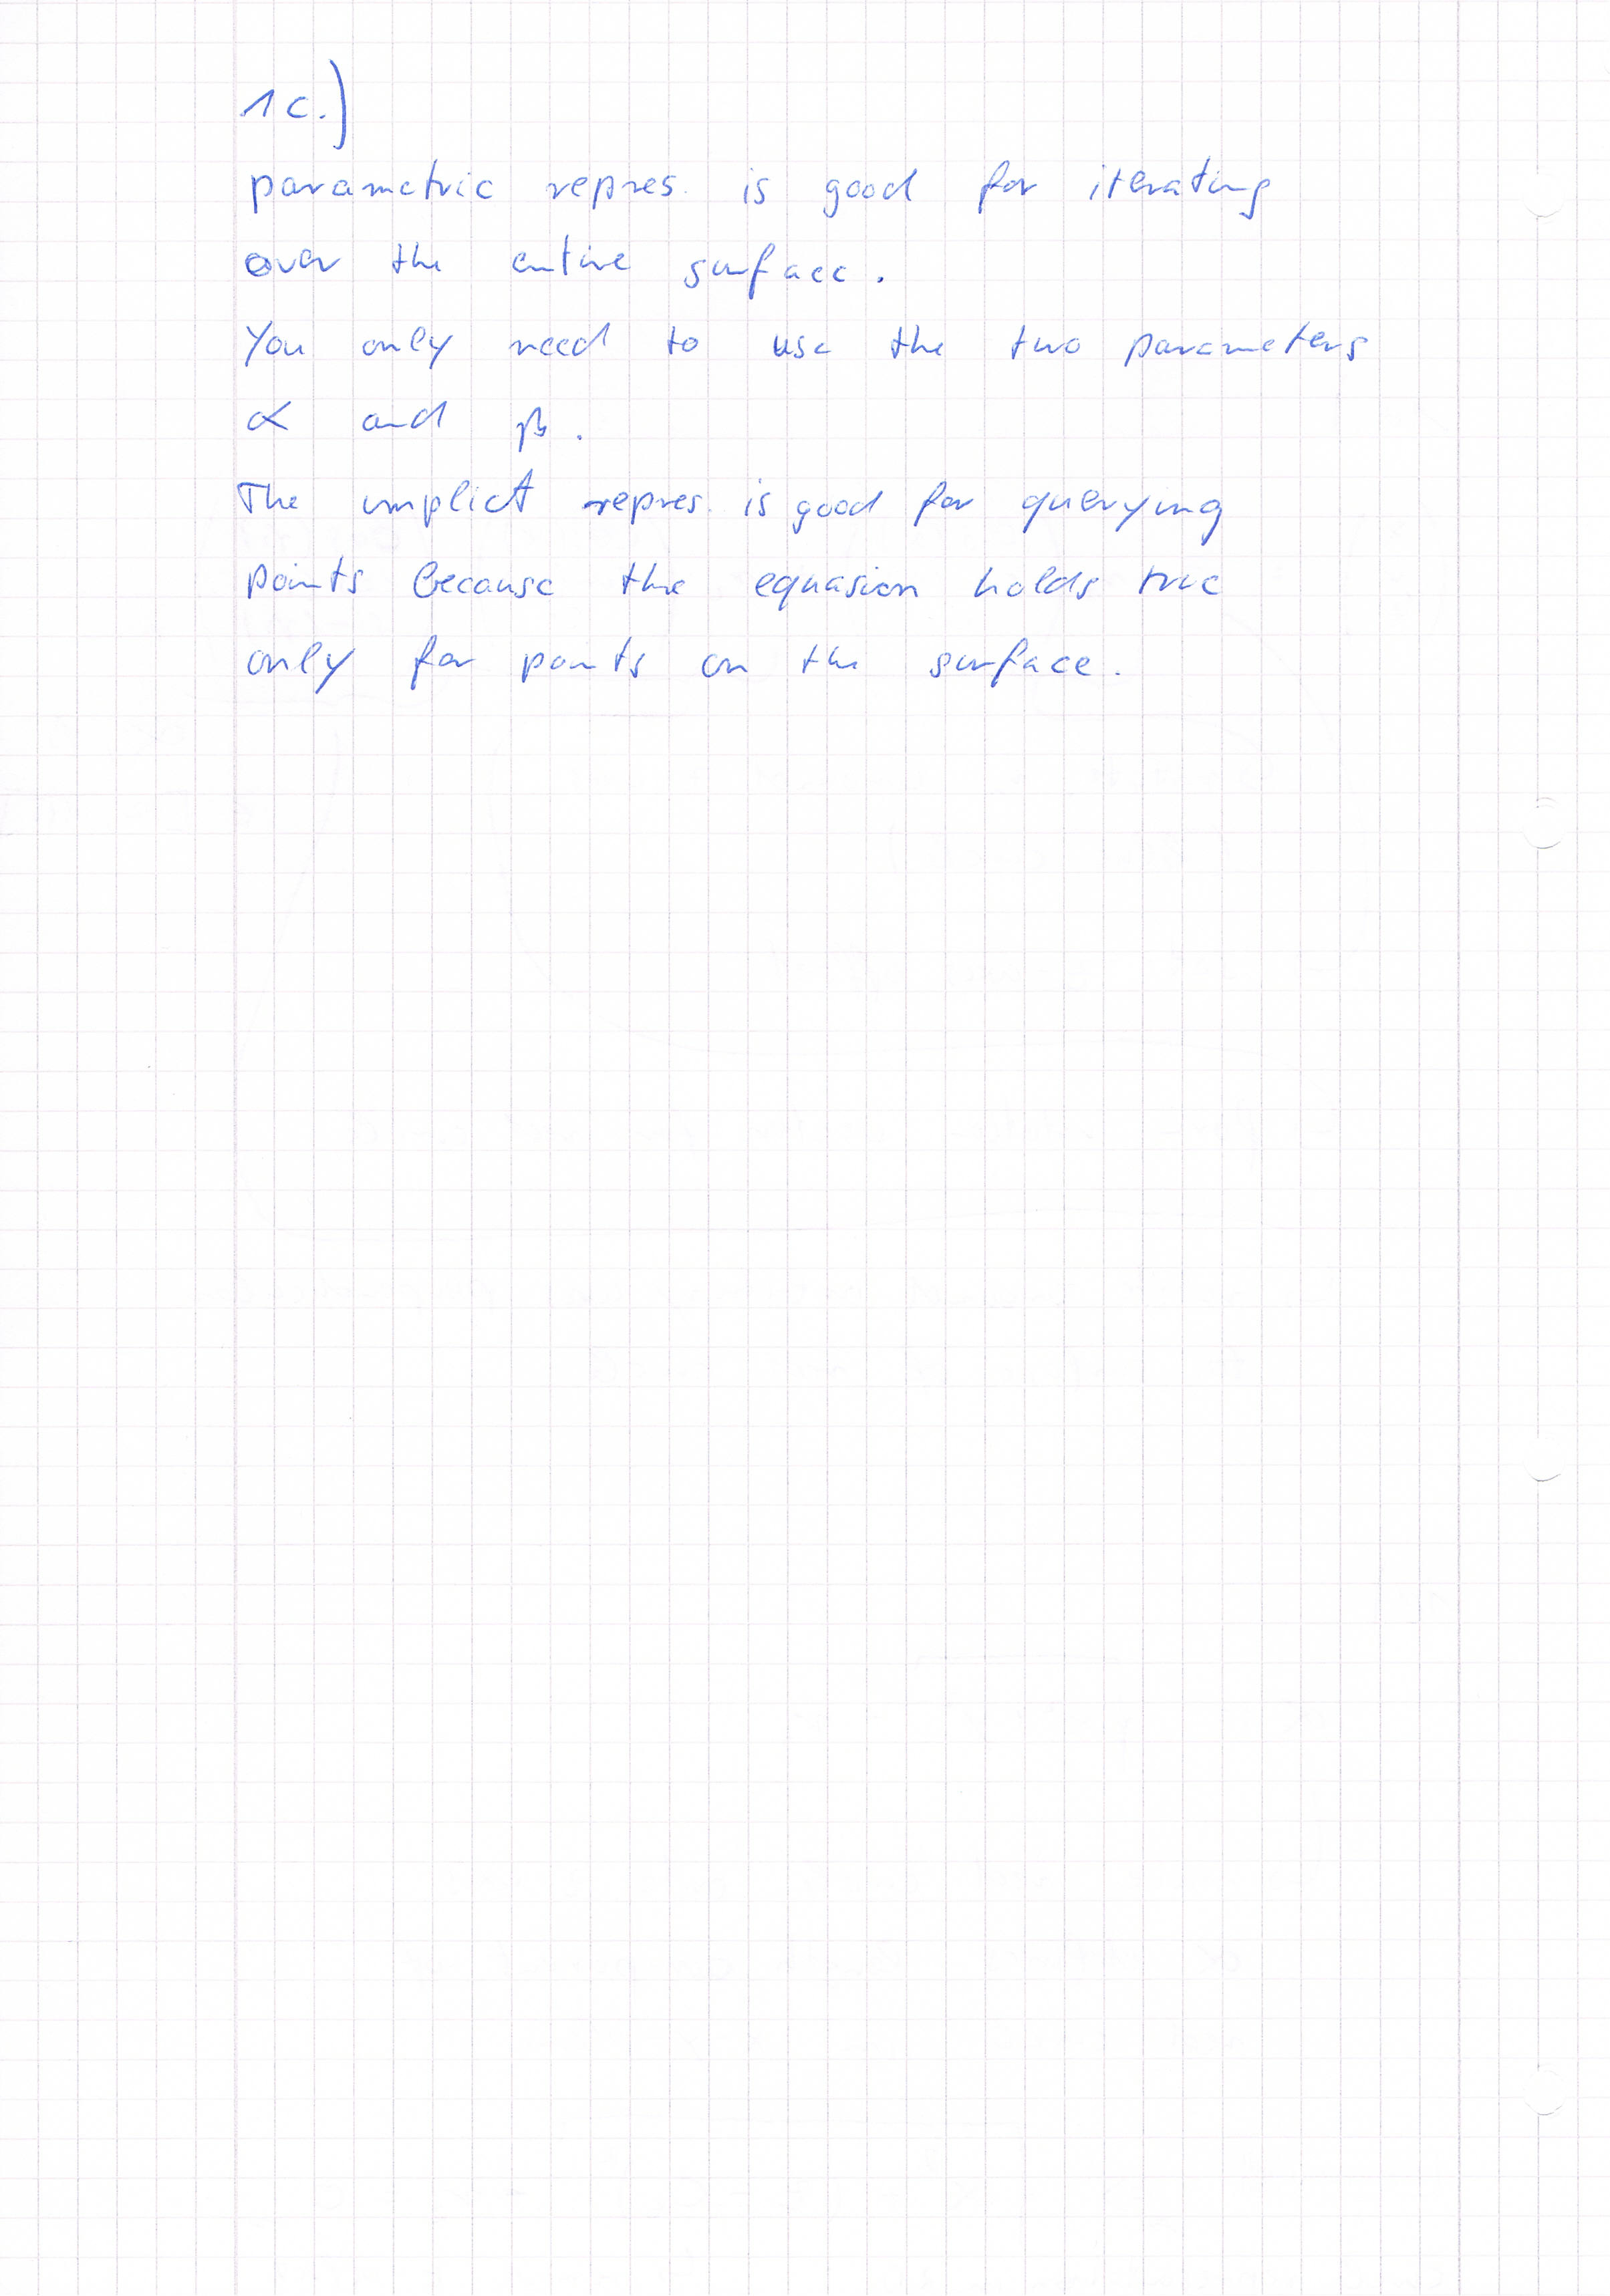 1c.)
parametric repres. is good for iterating
over the entire surface.
You only need to use the two parameters
α and β.
The implict repres. is good for querying
points because the equasion holds true
only for points on the surface.